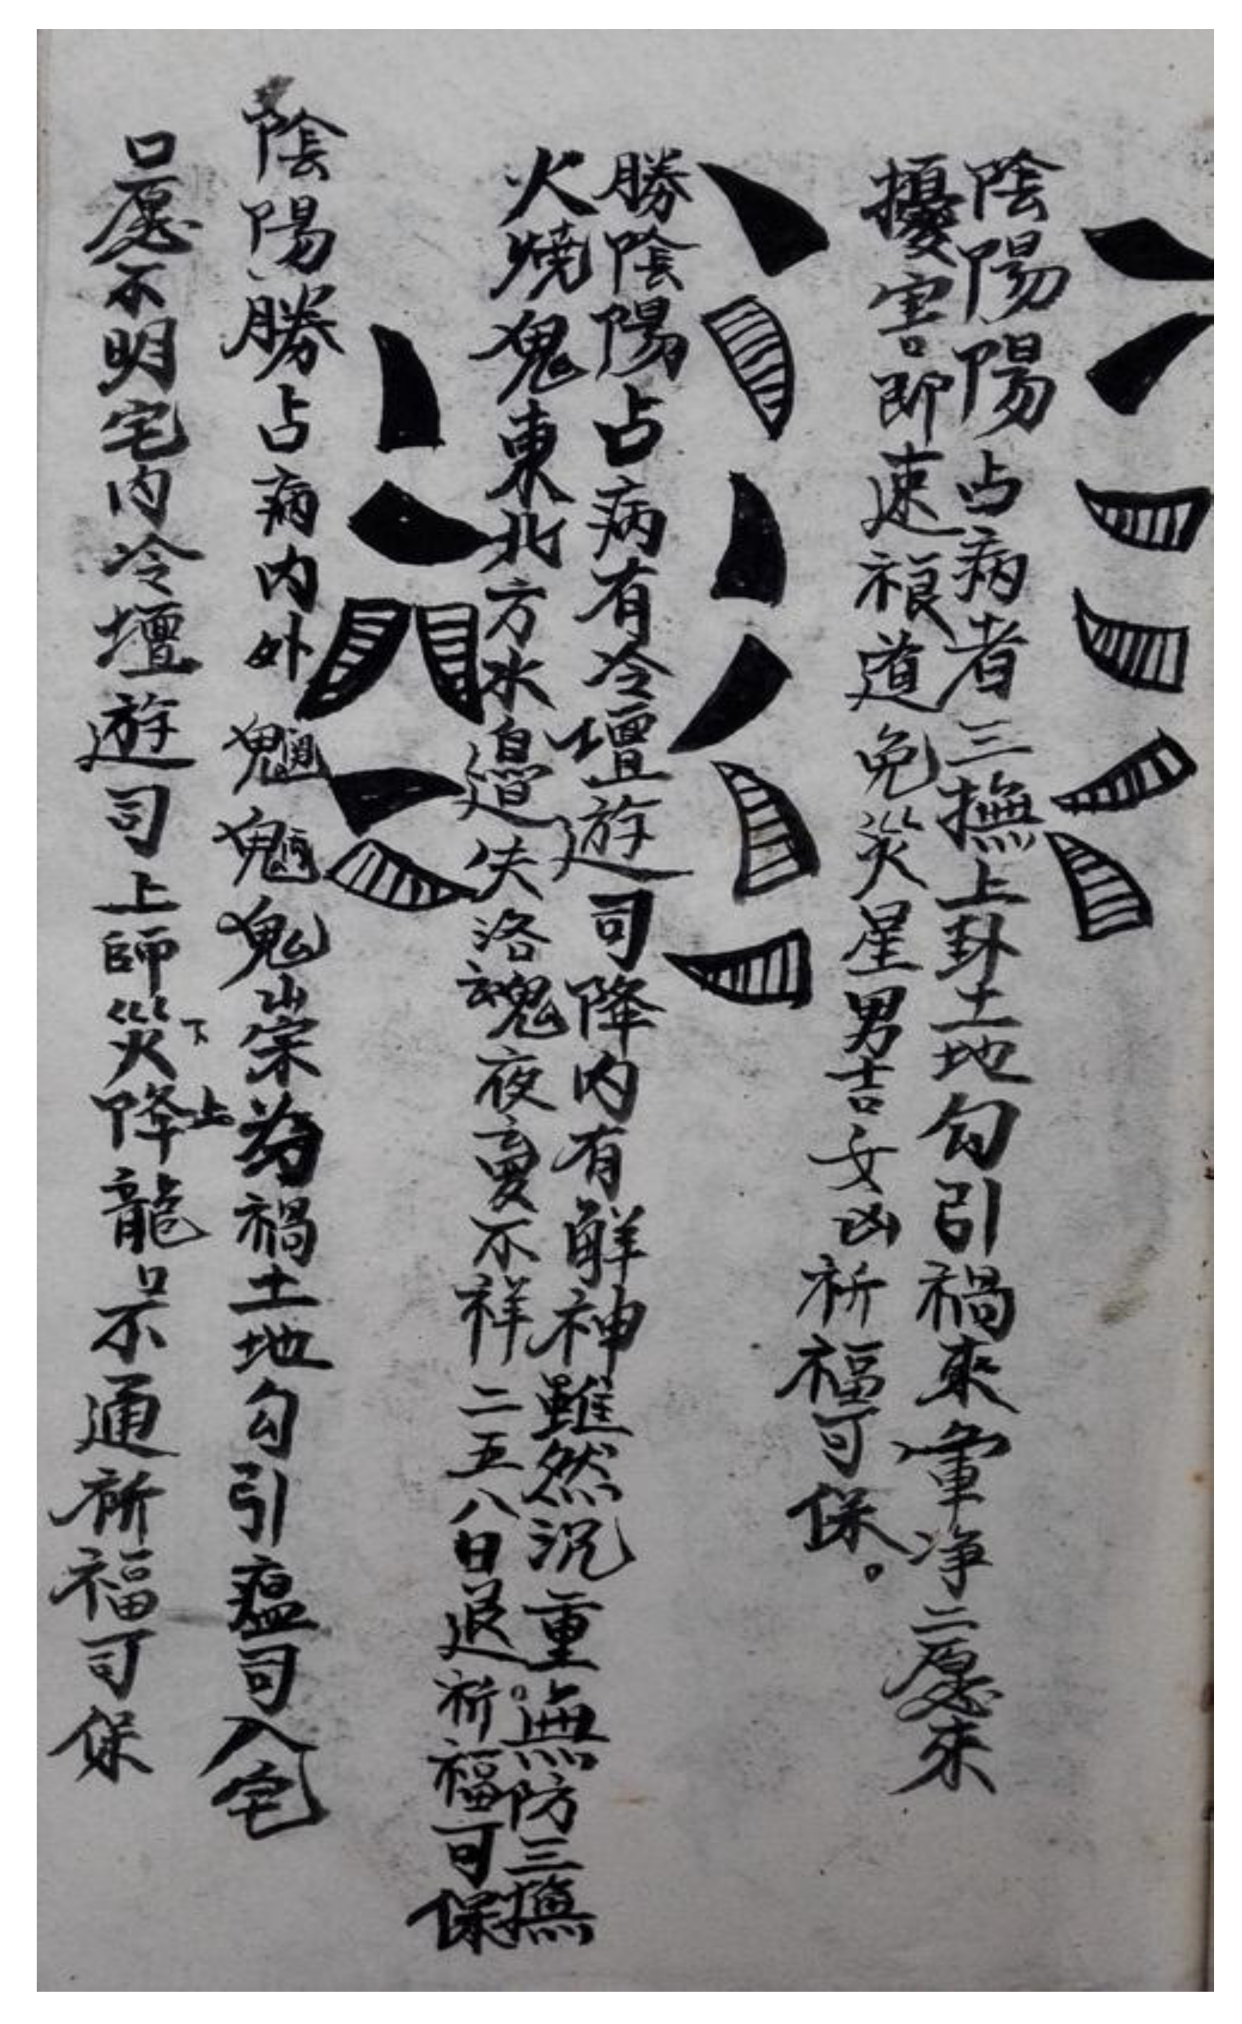 陰陽陽占病者三撫上卦土地勾引禍來軍净二愿未
擾害即速禳道免災星男吉女凶祈福可保。
勝陰陽占病有冷壇遊司降内有解神雖然沉重無防三撫
火燒鬼東北方水邉失洛魂夜夢不祥二五八日退祈福可保
陰陽勝占病内外魍魎鬼祟為禍土地勾引瘟司入宅
口愿不明宅内冷壇遊司上師災下降上龍口不通祈福可保